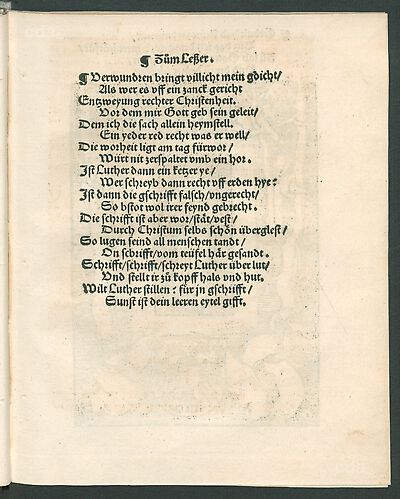 ¶ Zům Leßer.
¶ Verwundren bringt villicht mein gdicht/
Als wer es vff ein zanck gericht
Entzweyung rechter Christenheit.
Vor dem mir Gott geb sein geleit/
Dem ich die sach allein heymstell.
Ein yeder red recht was er well/
Die worheit ligt am tag fürwor/
Würt nit zerspaltet vmb ein hor.
Ist Luther dann ein ketzer ye/
Wer schreyb dann recht vff erden hye?
Ist dann die gschrifft falsch/vngerecht/
So bstot wol irer feynd gebrecht.
Die schrifft ist aber wor/stät/vest/
Durch Christum selbs schön überglest/
So lugen seind all menschen tandt/
On schrifft/vom teüfel här gesandt.
Schrifft/schrifft/schreyt Luther über lut/
Vnd stellt ir zů kopff hals vnd hut.
Wilt Luther stillen? für jn gschrifft/
Sunst ist dein leeren eytel gifft.